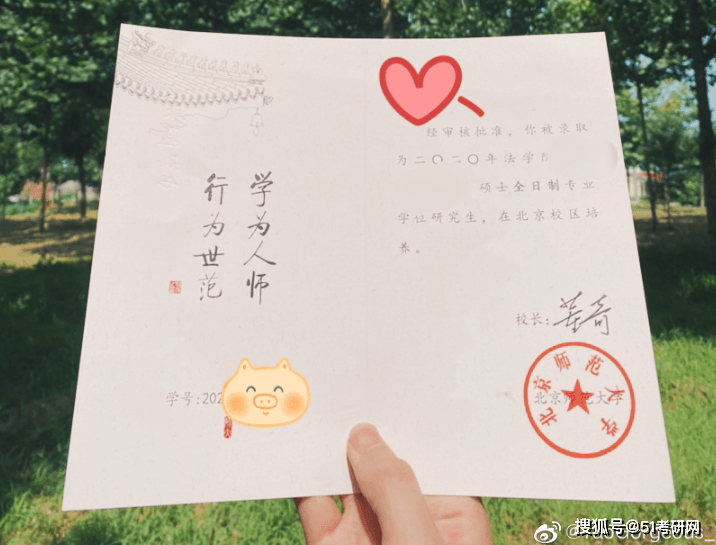 学为人师
行为世范
学号:202
经审核批准,你被录取
为二〇二〇年法学
硕士全日制专业
学位研究生,在北京校区培
养。
校长:董奇
北京师范大学
北京师范大学
搜狐号@51考研网